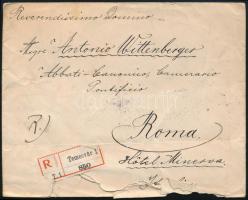 Reverendissimo Domino
Antonio Wittenberger
Abbati-Canonico, Camerario
Pontificio
R.)
Roma
Hôtel Minerva
R
Temesvár 1
890